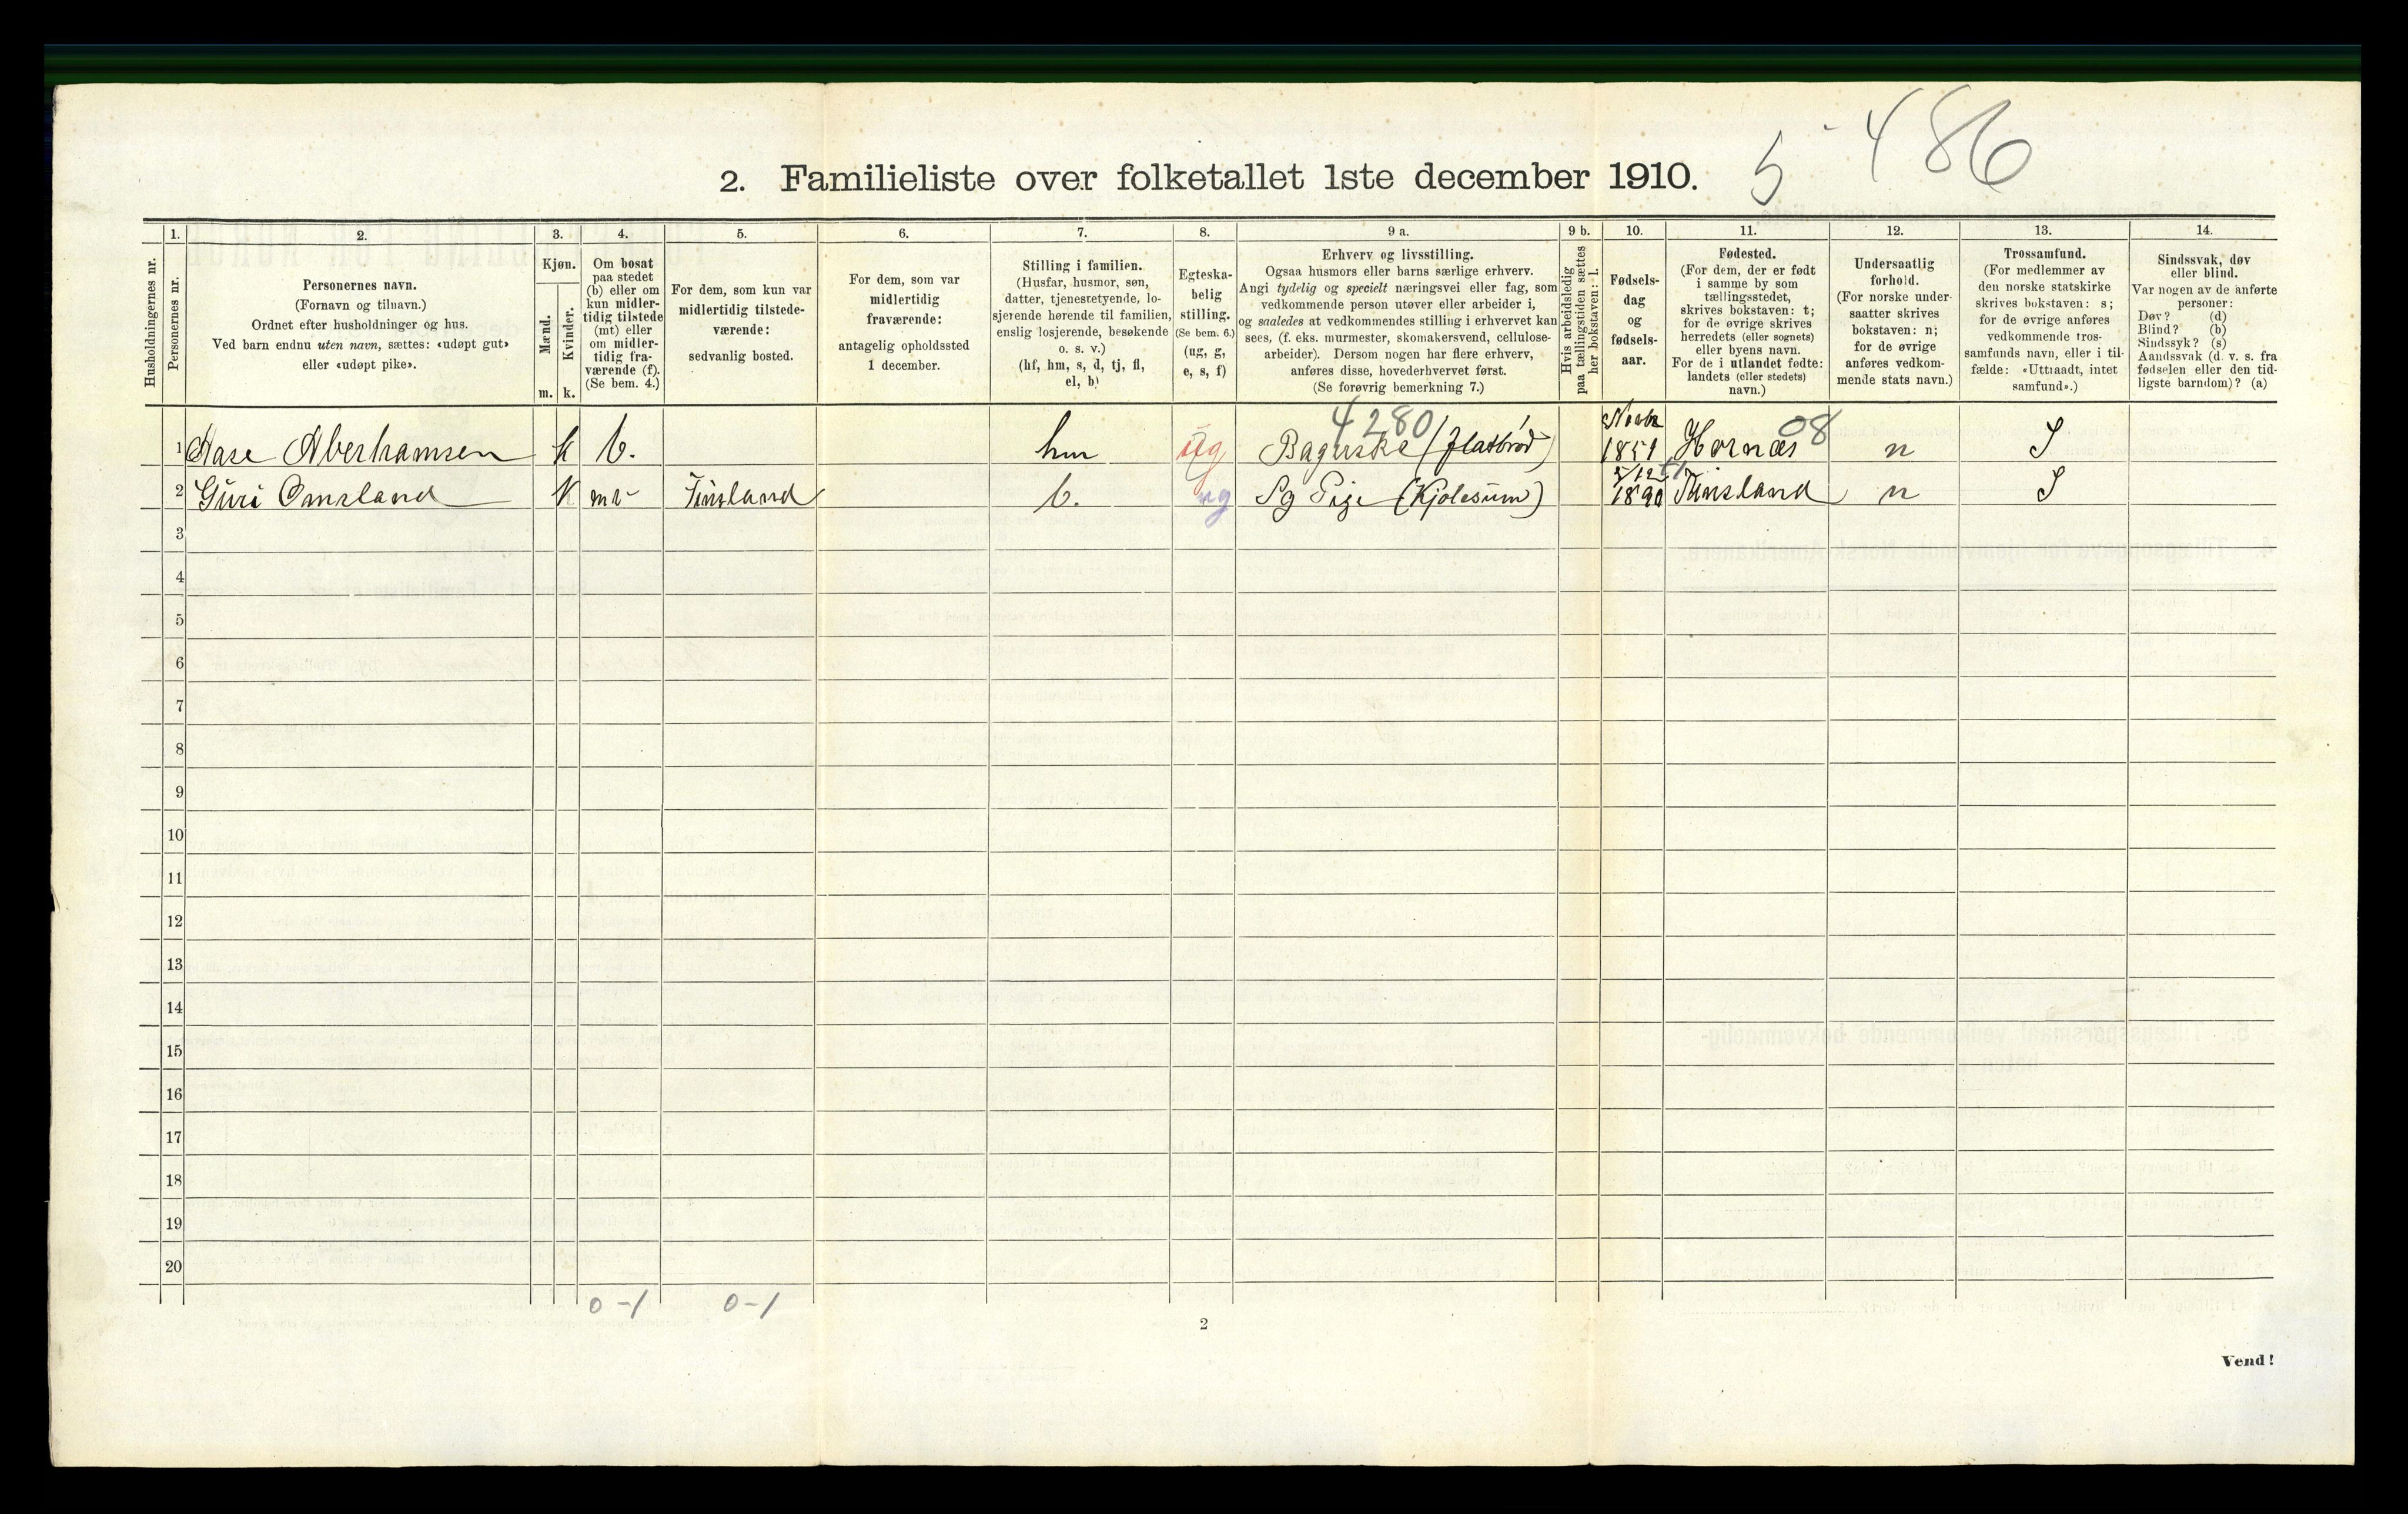 5 486
2. Familieliste over folketallet 1ste december 1910.
1. 2. 3. 4. 5. 6. 7. 8. 9 a. 9 b. 10. 11. 12. 13. 14.
Husholdningernes nr.
Personernes nr.
Personernes navn.
(Fornavn og tilnavn.)
Ordnet efter husholdninger og hus.
Ved barn endnu uten navn, sættes: «udøpt gut»
eller «udøpt pike».
Kjøn.
Mænd.
Kvinder.
m. k.
Om bosat
paa stedet
(b) eller om
kun midler-
tidig tilstede
(mt) eller
om midler-
tidig fra-
værende (f).
(Se bem. 4.)
For dem, som kun var
midlertidig tilstede-
værende:
sedvanlig bosted.
For dem, som var
midlertidig
fraværende:
antagelig opholdssted
1 december.
Stilling i familien.
(Husfar, husmor, søn,
datter, tjenestetyende, lo-
sjerende hørende til familien,
enslig losjerende, besøkende
o. s. v.)
(hf, hm, s, d, tj, fl,
el, b)
Egteska-
belig
stilling.
(Se bem. 6.)
(ug, g,
e, s, f)
Erhverv og livsstilling.
Ogsaa husmors eller barns særlige erhverv.
Angi tydelig og specielt næringsvei eller fag, som
vedkommende person utøver eller arbeider i,
og saaledes at vedkommendes stilling i erhvervet kan
sees, (f. eks. murmester, skomakersvend, cellulose-
arbeider). Dersom nogen har flere erhverv,
anføres disse, hovederhvervet først.
(Se forøvrig bemerkning 7.)
Hvis arbeidsledig
paa tællingstiden sættes
her bokstaven: l.
Fødsels-
dag
og
fødsels-
aar.
Fødested.
(For dem, der er født
i samme by som
tællingsstedet,
skrives bokstaven: t;
for de øvrige skrives
herredets (eller sognets)
eller byens navn.
For de i utlandet fødte:
landets (eller stedets)
navn.)
Undersaatlig
forhold.
(For norske under-
saatter skrives
bokstaven: n;
for de øvrige
anføres vedkom-
mende stats navn.)
Trossamfund.
(For medlemmer av
den norske statskirke
skrives bokstaven: s;
for de øvrige anføres
vedkommende tros-
samfunds navn, eller i til-
fælde: «Uttraadt, intet
samfund».)
Sindssvak, døv
eller blind.
Var nogen av de anførte
personer:
Døv? (d)
Blind? (b)
Sindssyk? (s)
Aandssvak (d. v. s. fra
fødselen eller den tid-
ligste barndom)? (a)
4280 08
1 Aase Aberhamsen k b. hm ug Baguske (flatbrød) 1851 Hornæs n S
2 Guri Omsland k mt Finsland b. ug Sy Pige (Kjolesüm) 5/12 1890 Finsland n S
3
4
5
6
7
8
9
10
11
12
13
14
15
16
17
18
19
20
0-1 0-1
2
Vend!